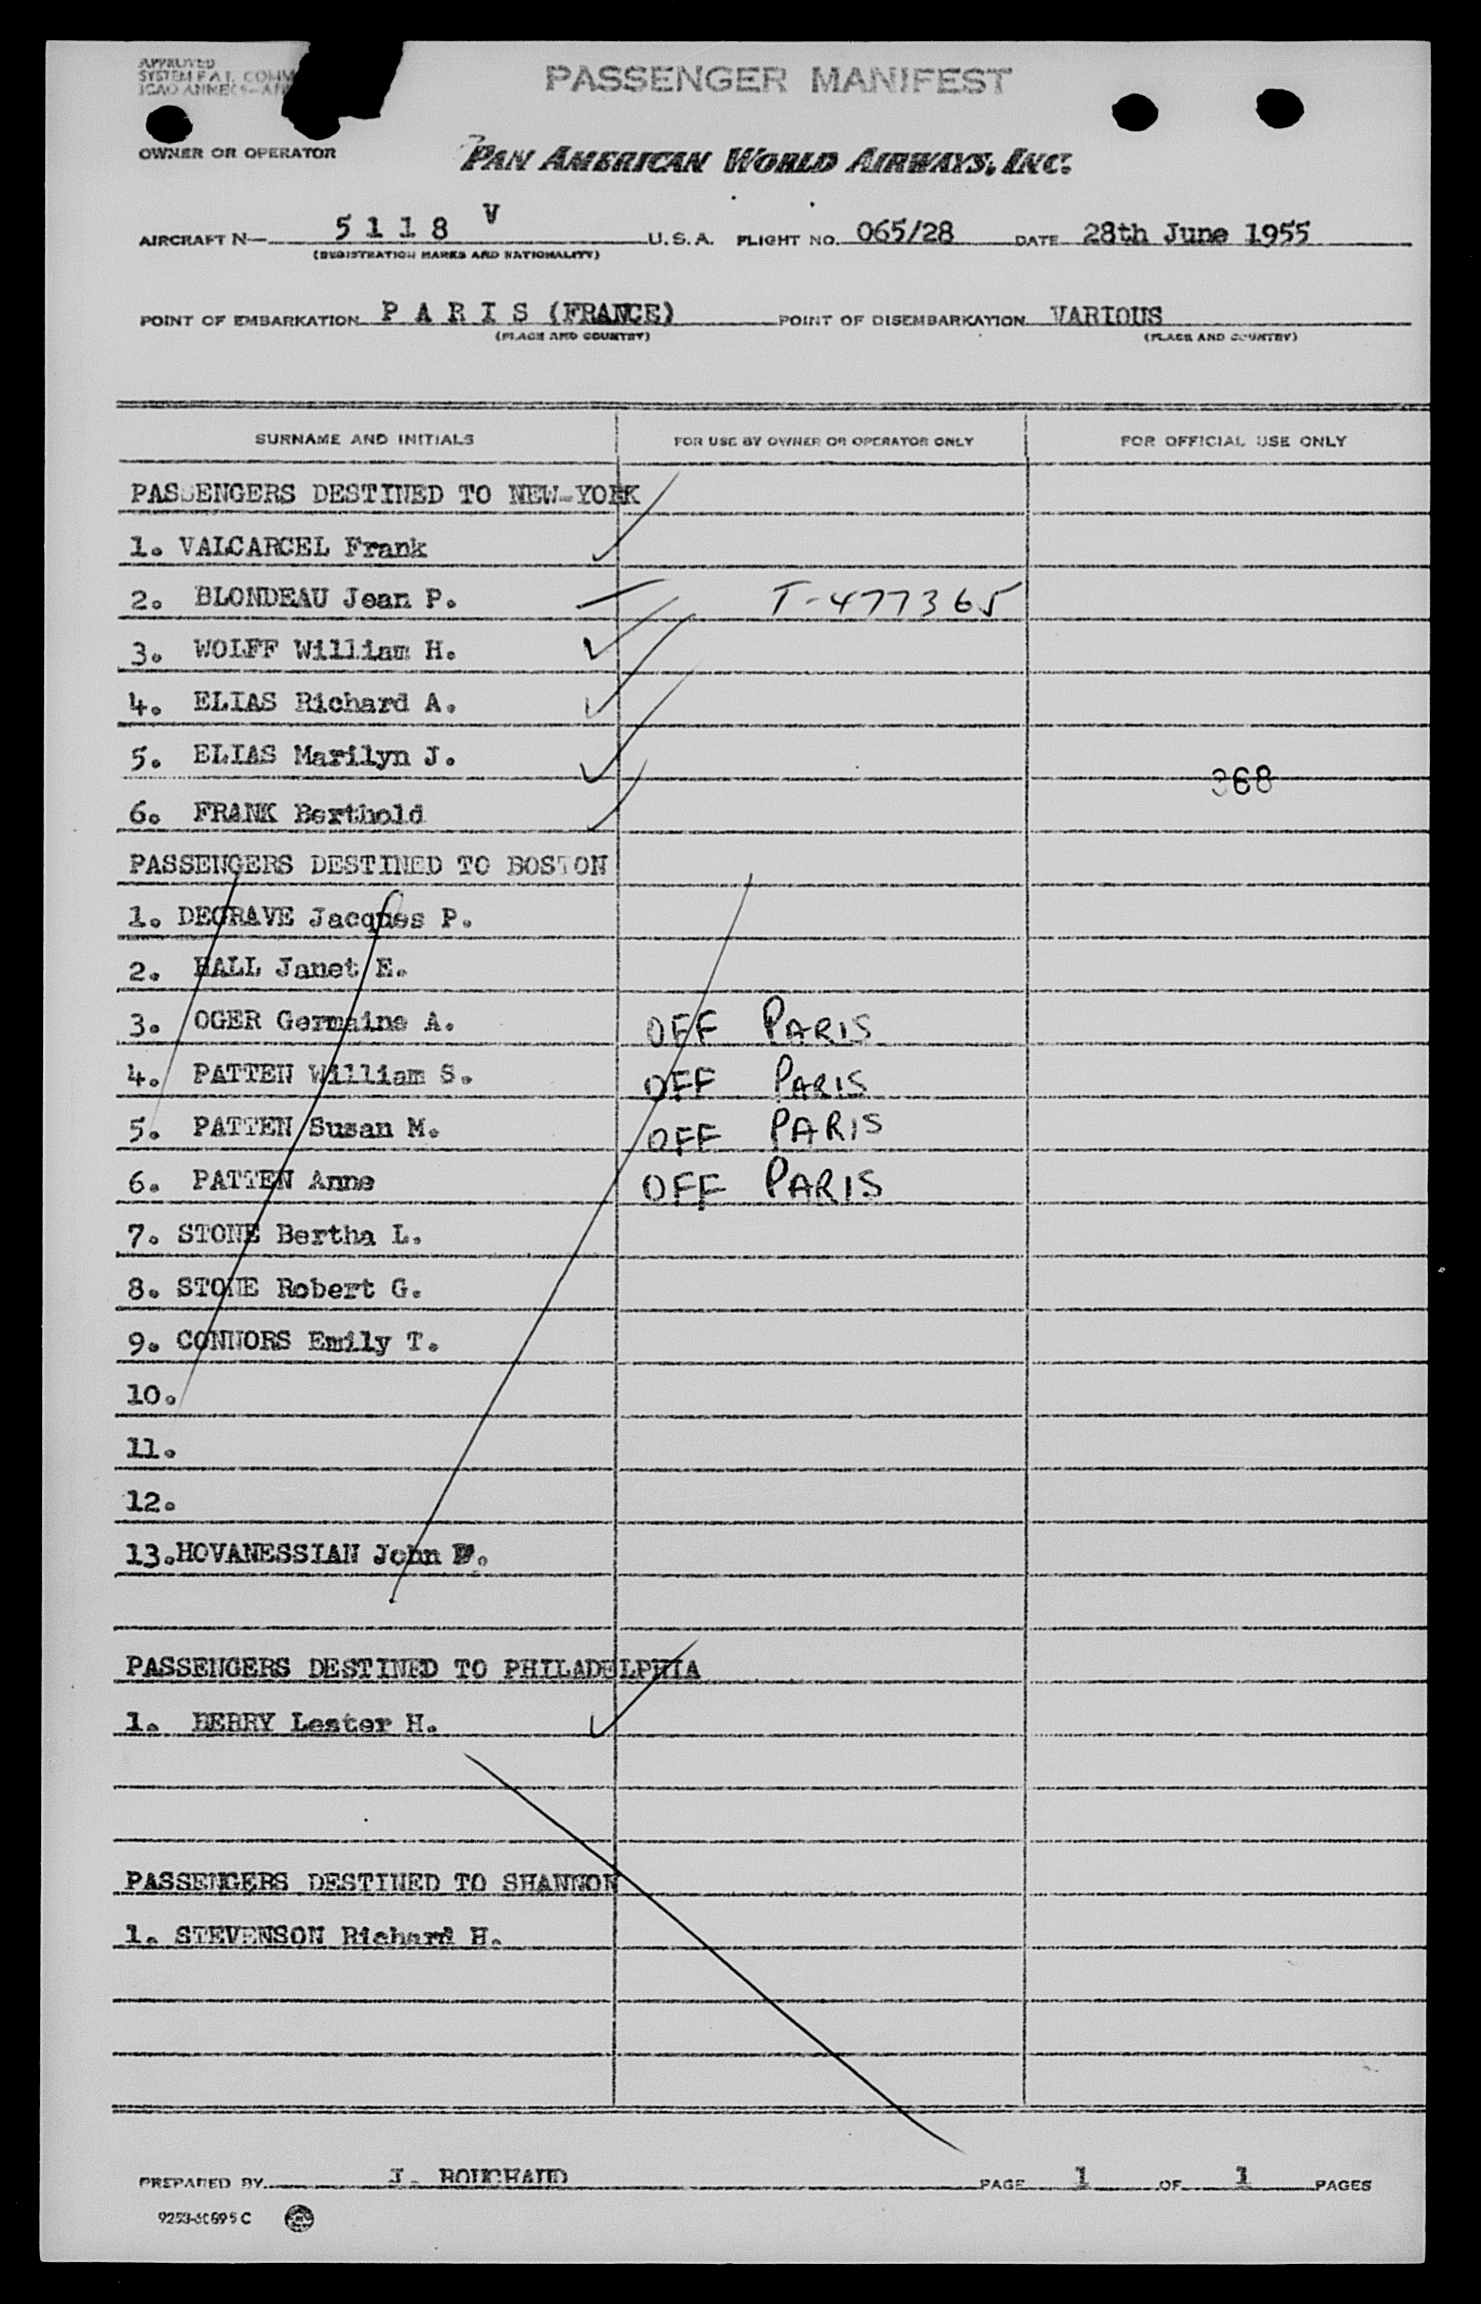 APPROVED
SYSTEM F.A.I. COMM
ICAO ANNEX 9—APP
PASSENGER MANIFEST
OWNER OR OPERATOR
PAN AMERICAN WORLD AIRWAYS, INC.
AIRCRAFT N— 5 1 1 8 V U.S.A. FLIGHT NO. 065/28 DATE 28th June 1955
(REGISTRATION MARKS AND NATIONALITY)
POINT OF EMBARKATION P A R I S (FRANCE) POINT OF DISEMBARKATION VARIOUS
(PLACE AND COUNTRY) (PLACE AND COUNTRY)
SURNAME AND INITIALS FOR USE BY OWNER OR OPERATOR ONLY FOR OFFICIAL USE ONLY
PASSENGERS DESTINED TO NEW-YORK
1. VALCARCEL Frank
2. BLONDEAU Jean P. T-477365
3. WOLFF William H.
4. ELIAS Richard A.
5. ELIAS Marilyn J.
368
6. FRANK Berthold
PASSENGERS DESTINED TO BOSTON
1. DEGRAVE Jacques P.
2. HALL Janet E.
3. OGER Germaine A. OFF PARIS
4. PATTEN William S. OFF PARIS
5. PATTEN Susan M. OFF PARIS
6. PATTEN Anne OFF PARIS
7. STONE Bertha L.
8. STONE Robert G.
9. CONNORS Emily T.
10.
11.
12.
13.HOVANESSIAN John
PASSENGERS DESTINED TO PHILADELPHIA
1. BERRY Lester H.
PASSENGERS DESTINED TO SHANNON
1. STEVENSON Richard H.
PREPARED BY J. BOUCHAUD PAGE 1 OF 1 PAGES